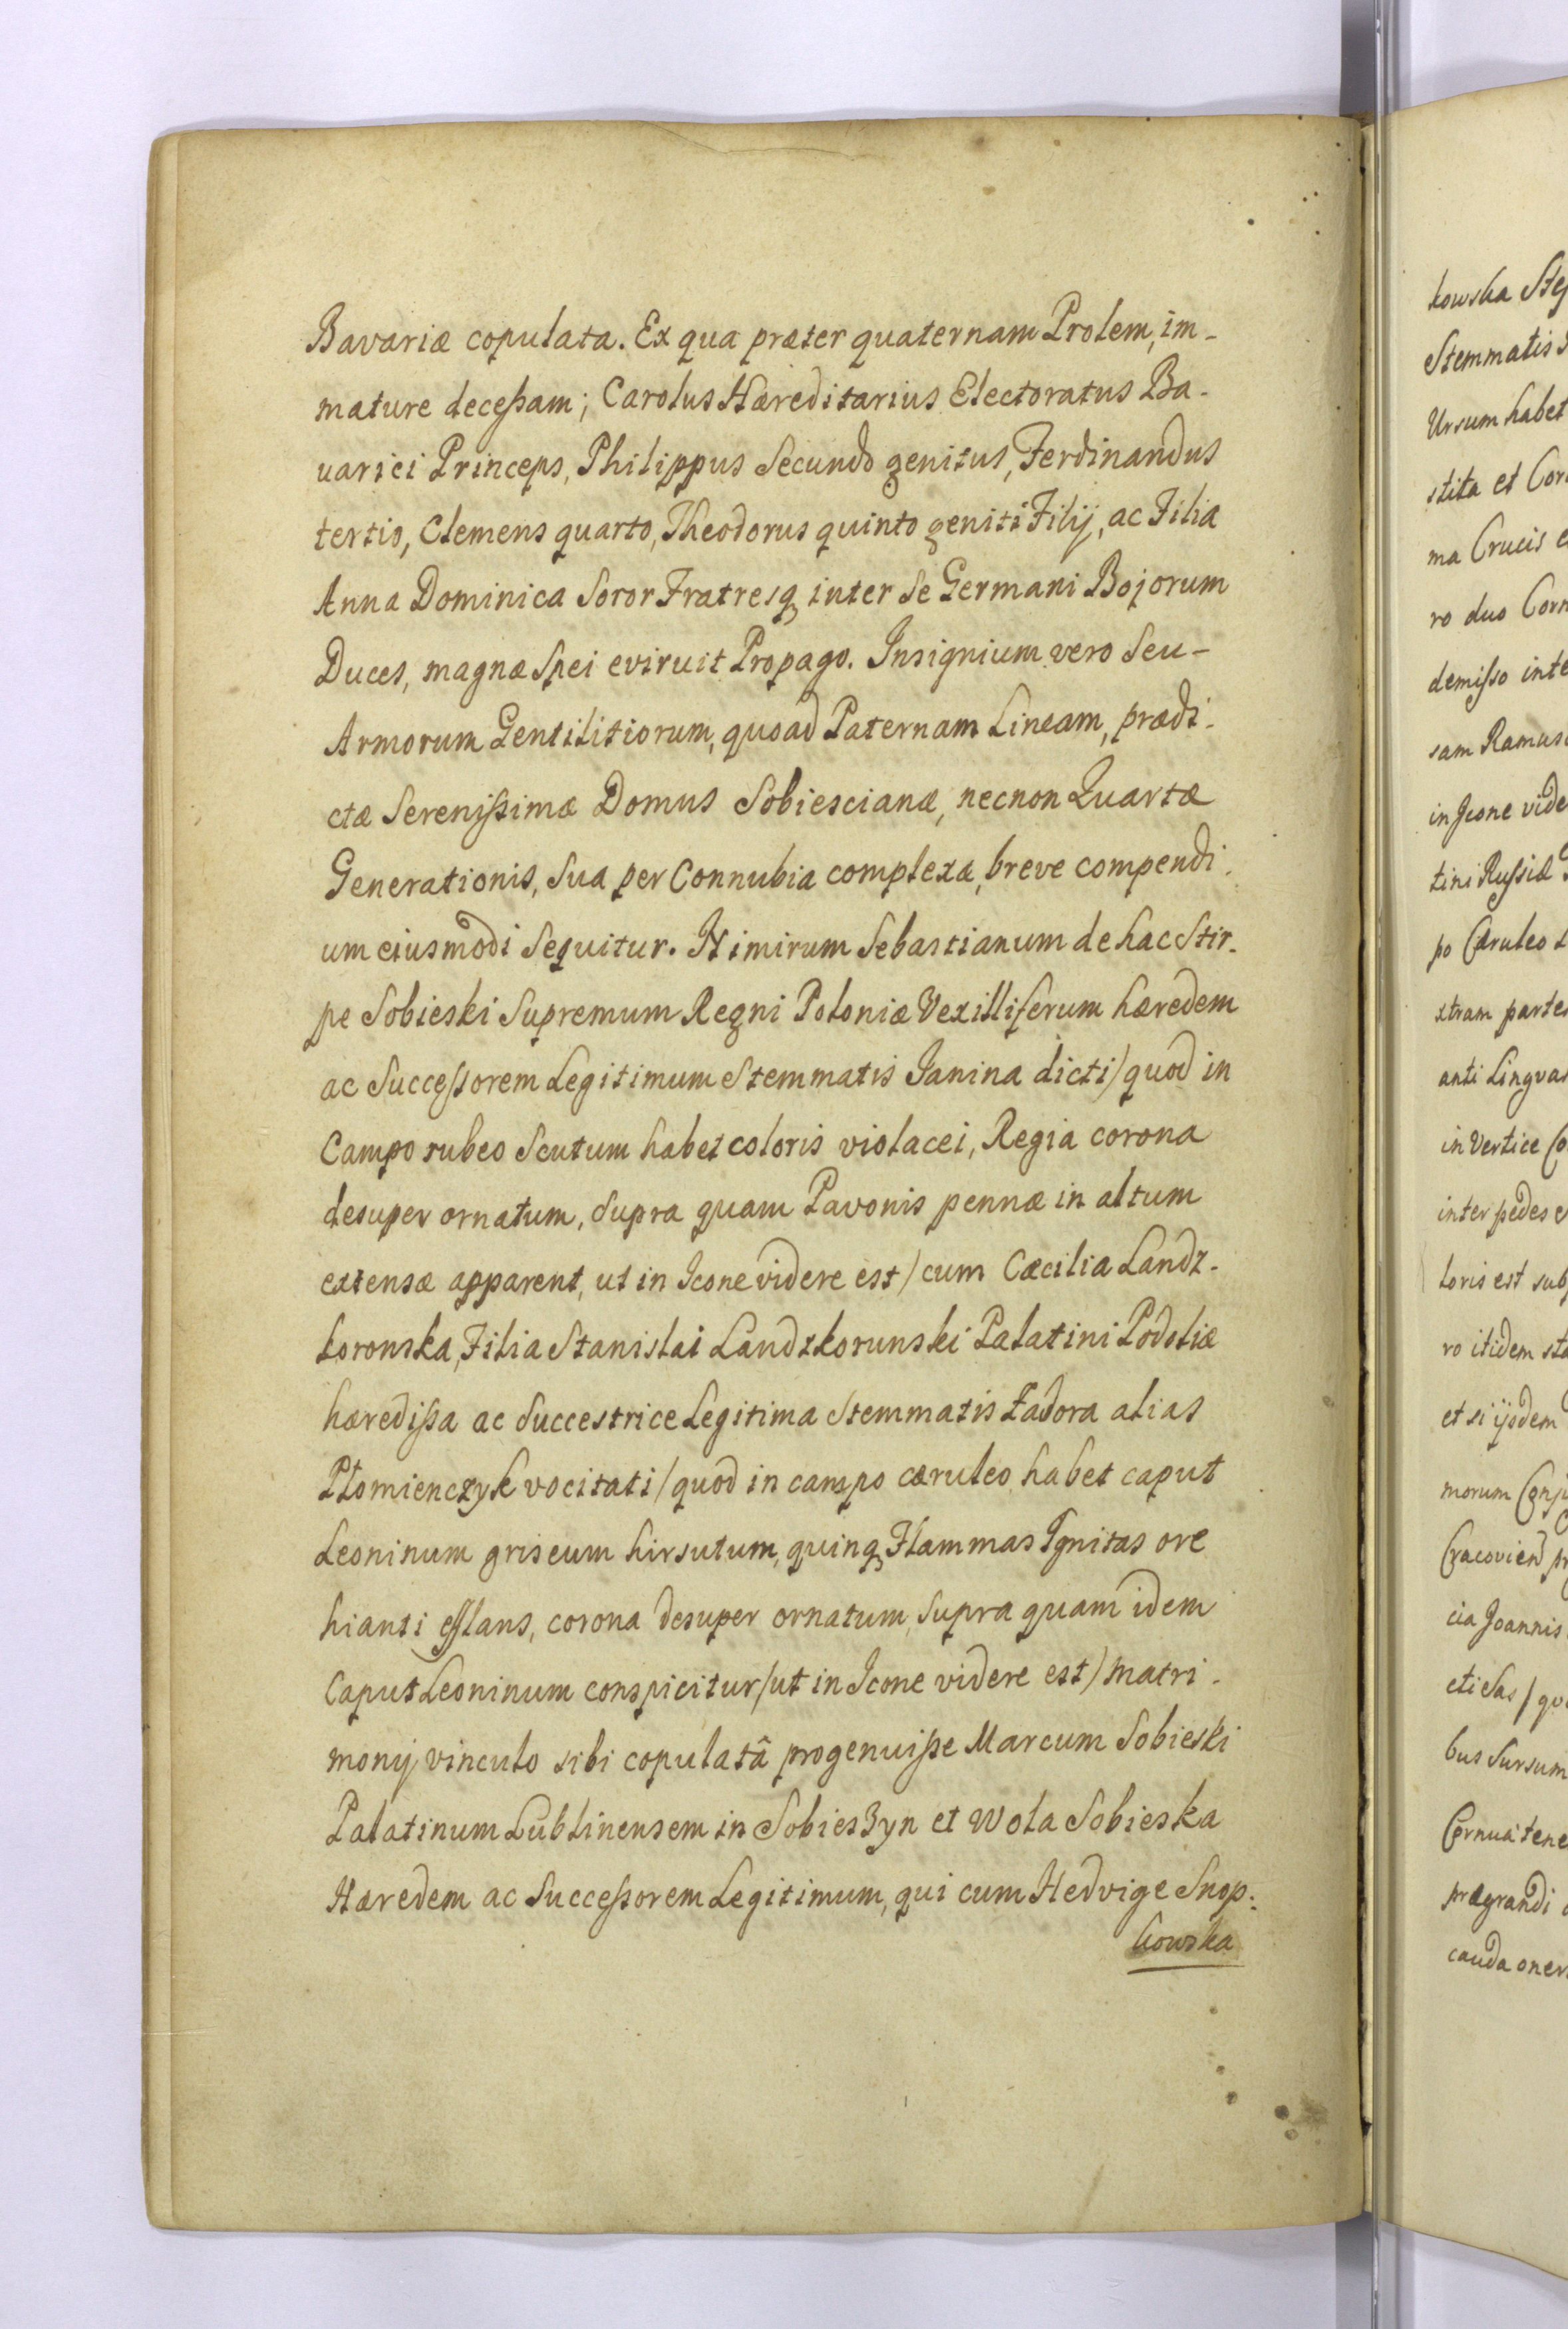 Bavariæ copulata. Ex qua præter quaternam Prolem, im-
mature deceßam; Carolus Hæreditarius Electoratus Ba-
varici Princeps, Philippus Secundo genitus, Ferdinandus
tertio, Clemens quarto, Theodorus quinto geniti Filij, ac Filia
Anna Dominica Soror Fratresq inter Se Germani Bojorum
Duces, magnæ Spei eviruit Propago. Insignium vero Seu-
Armorum Gentilitiorum, quoad Paternam Lineam, prædi-
ctæ Sereniſsimæ Domus Sobiescianæ, necnon Quartæ
Generationis, Sua per Connubia complexæ, breve compendi-
um eiusmodi Sequitur. Nimirum Sebastianum de hac Stir-
pe Sobieski Supremum Regni Poloniæ Vexilliferum hæredem
ac Succeſsorem Legitimum Stemmatis Janina dicti/quod in
Campo rubeo Scutum habet coloris violacei, Regia corona
desuper ornatum, Supra quam Pavonis pennæ in altum
extensæ apparent, ut in Icone videre est/cum Cæcilia Landz-
koronska, Filia Stanislai Landzkorunski Palatini Podoliæ
hærediſsa ac Succestrice Legitima Stemmatis Zadora alias
Płomienczyk vocitati/quod in campo cæruleo habet caput
Leoninum griseum hirsutum, quinq Flammas Ignitas ore
hianti efflans, corona desuper ornatum, Supra quam idem
Caput Leoninum conspicitur/ut in Icone videre est/Matri-
monij vinculo sibi copulatâ progenuiſse Marcum Sobieski
Palatinum Lublinensem in Sobieszyn et Wola Sobieska
Hæredem ac Succeſsorem Legitimum, qui cum Hedvige Snop-
kowska
kowska
Stemmatis
Ursum habet
stita et
ma Crucis
ro duo
demiſso
sam
in Icone
tini Ruſsiæ
po Cæruleo
xtram
anti
in Vertice
inter pedes
loris est
ro itidem
et si ijsdem
morum
Cracovien
cia Joannis
bus Sursum
Cornua
prægrandi
cauda